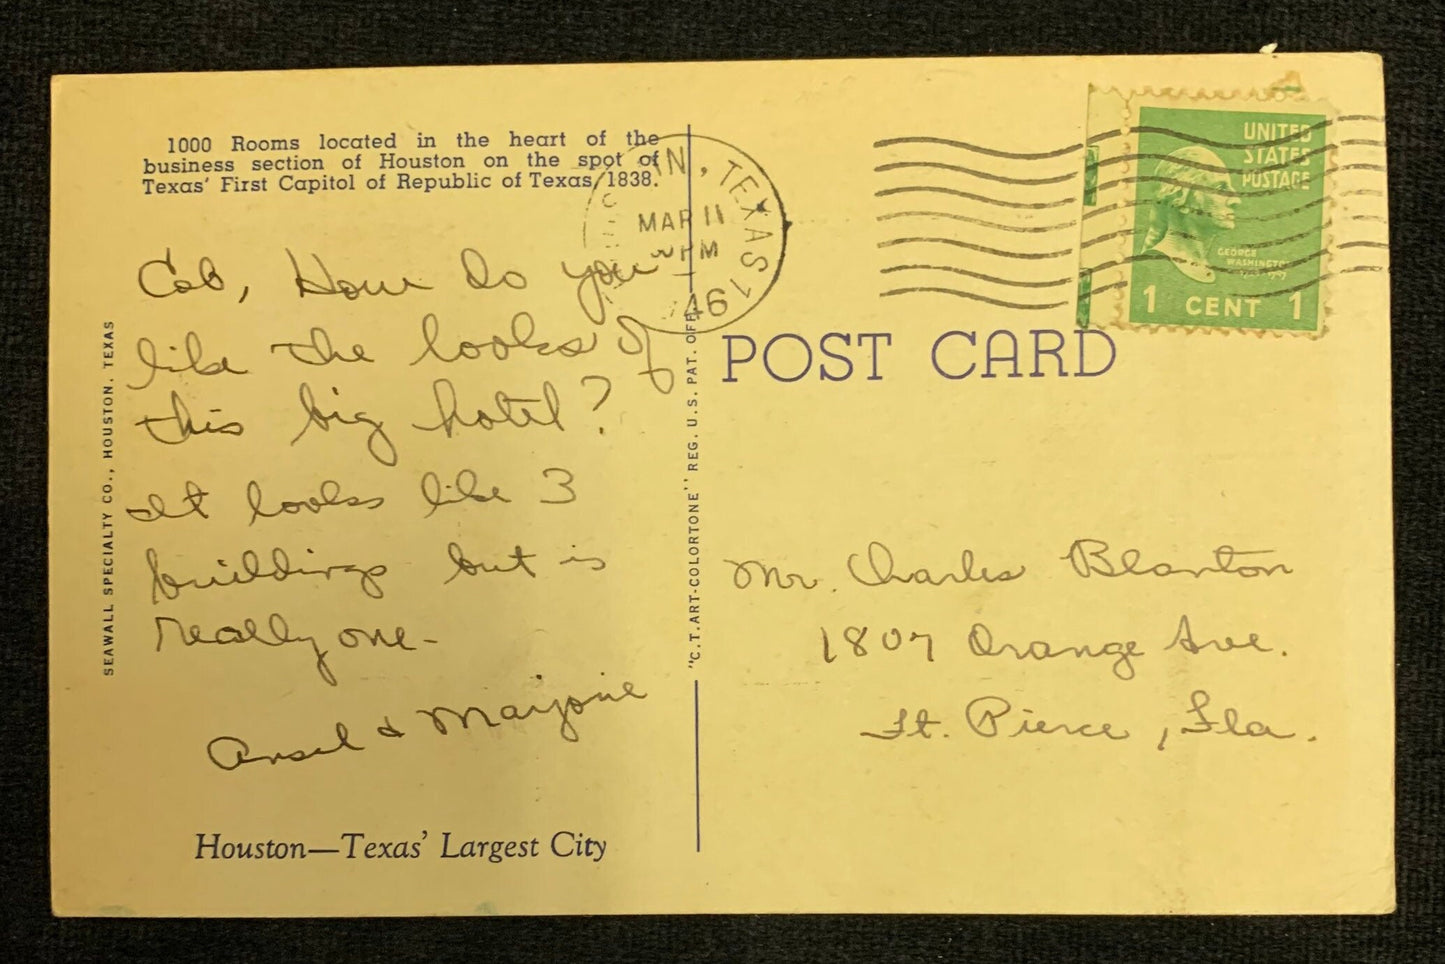 1000 Rooms located in the heart of the
business section of Houston on the spot of
Texas' First Capitol of Republic of Texas, 1838.
Cob, How do you
like the looks of
this big hotel?
It looks like 3
buildings but is
really one-
Ansel & Marjorie
Houston—Texas' Largest City
SEAWALL SPECIALTY CO., HOUSTON, TEXAS
"C.T. ART-COLORTONE" REG. U.S. PAT. OFF.
N, TEXAS
MAR 11
PM
1946
UNITED
STATES
POSTAGE
GEORGE
WASHINGTON
1 CENT 1
POST CARD
Mr. Charles Blanton
1807 Orange Ave.
Ft. Pierce, Fla.